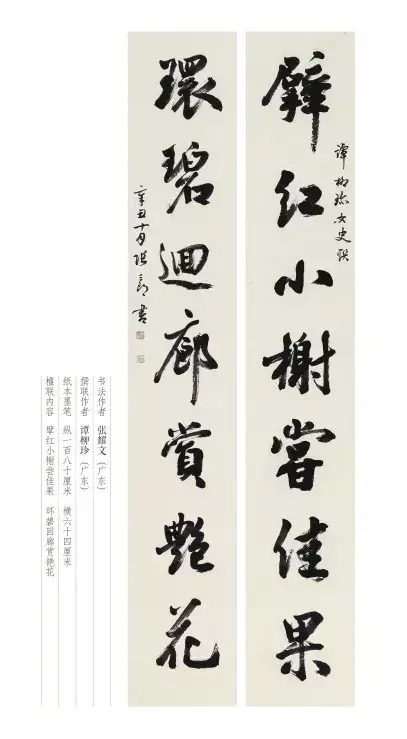 擘紅小榭嘗佳果
譚柳珍女史聯
環碧迴廊賞艷花
辛丑十月張 書
书法作者 张耀文（广东）
撰联作者 谭柳珍（广东）
纸本墨笔 纵一百八十厘米 横六十四厘米
楹联内容 擘红小榭尝佳果 环碧回廊赏艳花